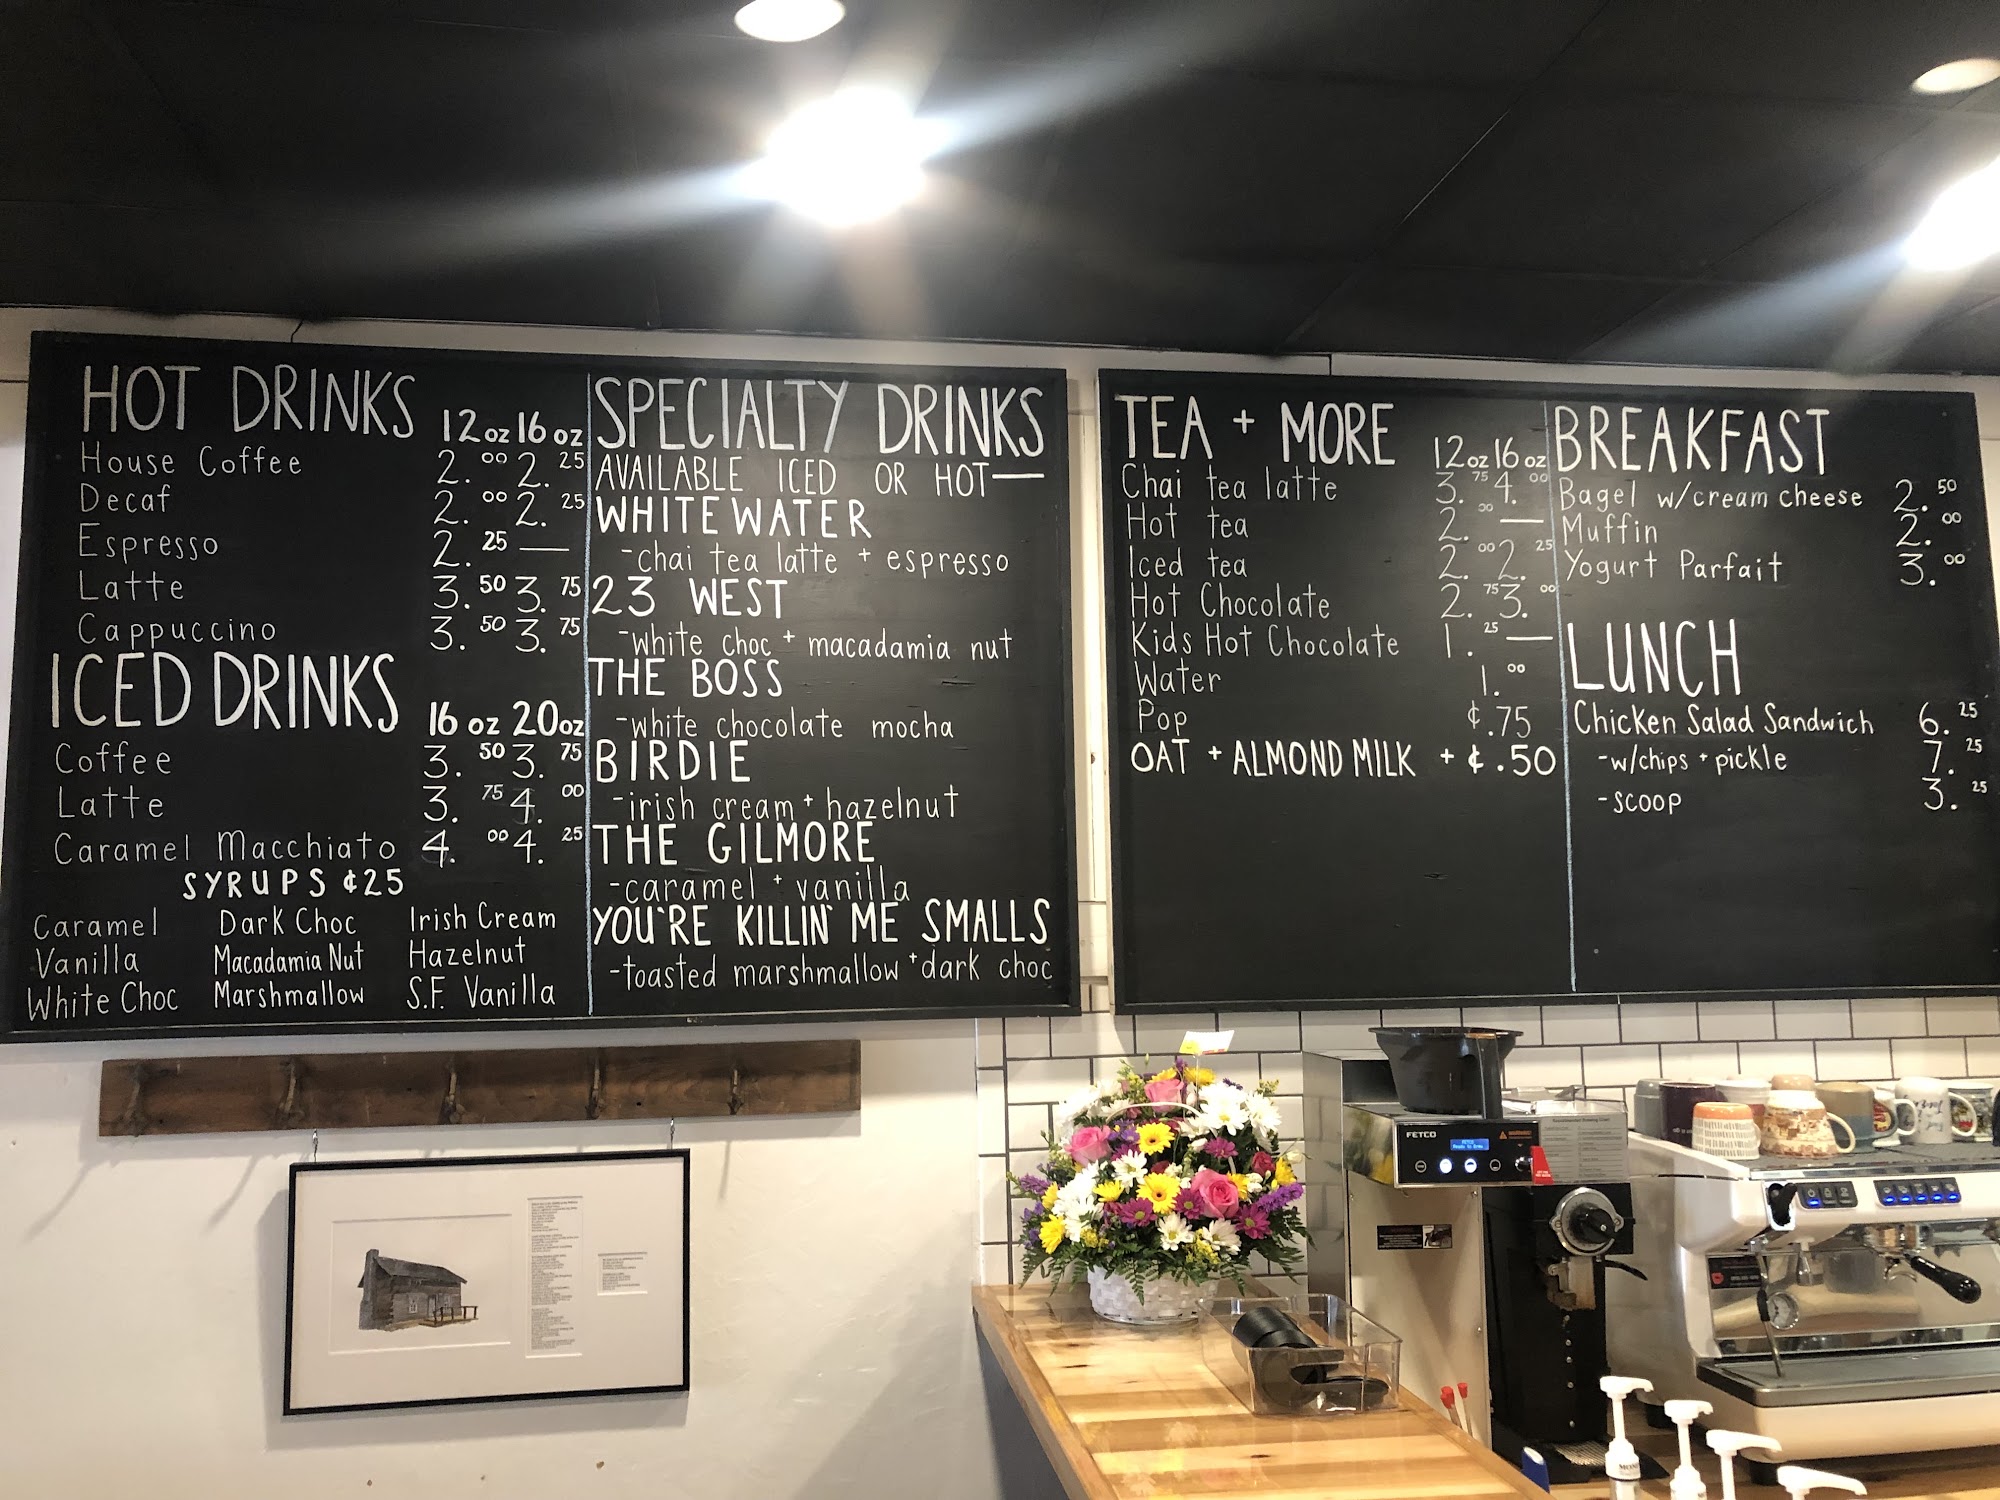 HOT DRINKS 12oz 16oz
House Coffee 2.00 2.25
Decaf 2.00 2.25
Espresso 2.25 —
Latte 3.50 3.75
Cappuccino 3.50 3.75
ICED DRINKS 16 oz 20oz
Coffee 3.50 3.75
Latte 3.75 4.00
Caramel Macchiato 4.00 4.25
SYRUPS ¢25
Caramel Dark Choc Irish Cream
Vanilla Macadamia Nut Hazelnut
White Choc Marshmallow S.F. Vanilla
SPECIALTY DRINKS
AVAILABLE ICED OR HOT—
WHITEWATER
-chai tea latte + espresso
23 WEST
-white choc + macadamia nut
THE BOSS
-white chocolate mocha
BIRDIE
-irish cream + hazelnut
THE GILMORE
-caramel + vanilla
YOU'RE KILLIN' ME SMALLS
-toasted marshmallow + dark choc
TEA + MORE 12oz 16oz
Chai tea latte 3.75 4.00
Hot tea 2.00 —
Iced tea 2.00 2.25
Hot Chocolate 2.75 3.00
Kids Hot Chocolate 1.25 —
Water 1.00
Pop ¢.75
OAT + ALMOND MILK + ¢.50
BREAKFAST
Bagel w/cream cheese 2.50
Muffin 2.00
Yogurt Parfait 3.00
LUNCH
Chicken Salad Sandwich 6.25
-w/chips + pickle 7.25
-scoop 3.25
FETCO